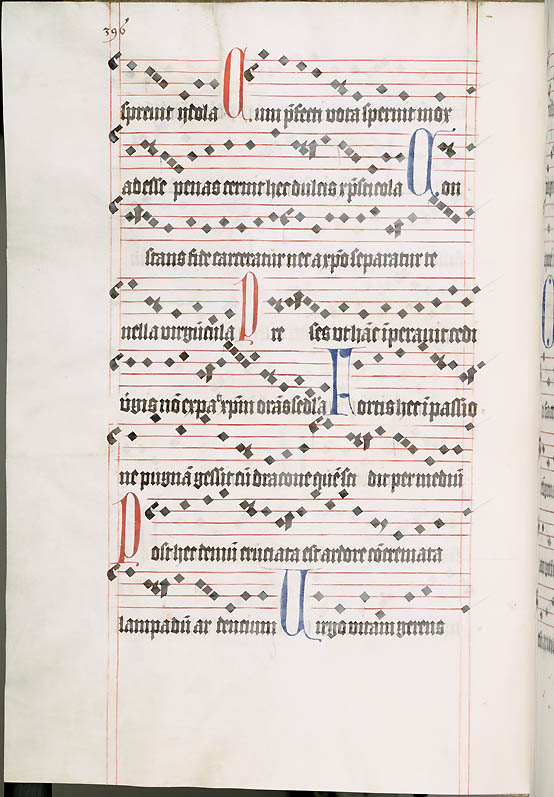 396
spreuit ydola Cum p̄sten vota spernit mox
adesse penas cernit hec dulcis xp̄icola Con
stans fide carceratur nec a xp̄o separatur te
nella virgūcula Pre ses vt hāc īperauit cedi
v̄gis nō expauit xp̄m orās sedla Fortis hec ī passio
ne pugnā gessit cū dracone quē sci dit per mediū
Post hec demū cruciata est ardore cōcremata
lampadū ar dencium Virgo vitam gerens